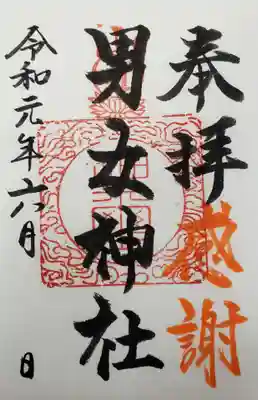 奉拝
感謝
男女神社
令和元年六月 日